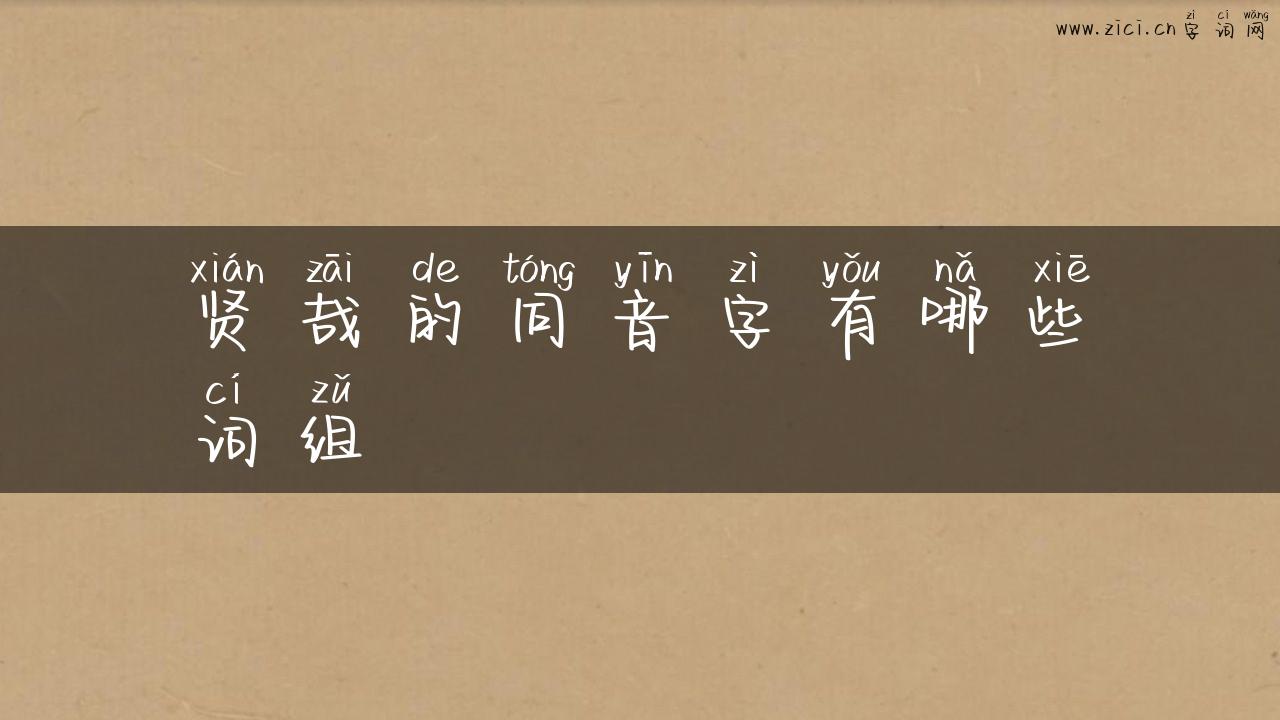 zì cí wǎng
www.zici.cn 字 词 网
xián zāi de tóng yīn zì yǒu nǎ xiē
贤 哉 的 同 音 字 有 哪 些
cí zǔ
词 组